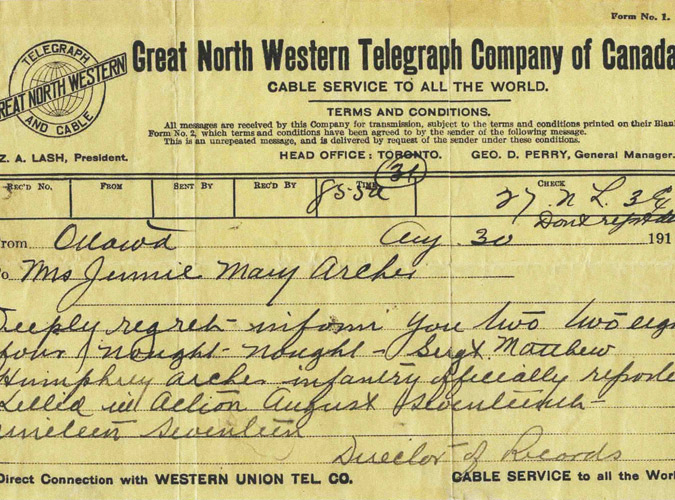 Form No. 1.
TELEGRAPH
GREAT NORTH WESTERN
AND CABLE
Great North Western Telegraph Company of Canada
CABLE SERVICE TO ALL THE WORLD.
TERMS AND CONDITIONS.
All messages are received by this Company for transmission, subject to the terms and conditions printed on their Blan
Form No. 2, which terms and conditions have been agreed to by the sender of the following message.
This is an unrepeated message, and is delivered by request of the sender under these conditions.
Z. A. LASH, President. HEAD OFFICE: TORONTO. GEO. D. PERRY, General Manager.
Rec'd No. From Sent By Rec'd By Time Check
31
27 N L
Dont
From Ottawa Aug. 30 191
To Mrs Jennie Mary Archer
Deeply regret inform you two two eig
four nought - nought - Sergt. Matthew
Humphrey Archer infantry officially reporte
killed in action August Seventeenth
nineteen Seventeen
Director of Records
Direct Connection with WESTERN UNION TEL. CO. CABLE SERVICE to all the Worl